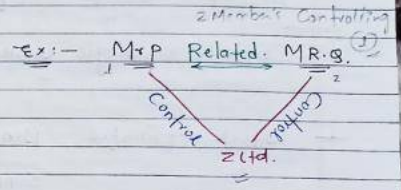 2 Member's Controlling
(1)
Ex:- Mr P Related. MR.Q.
1 2
Control Control
Z Ltd.